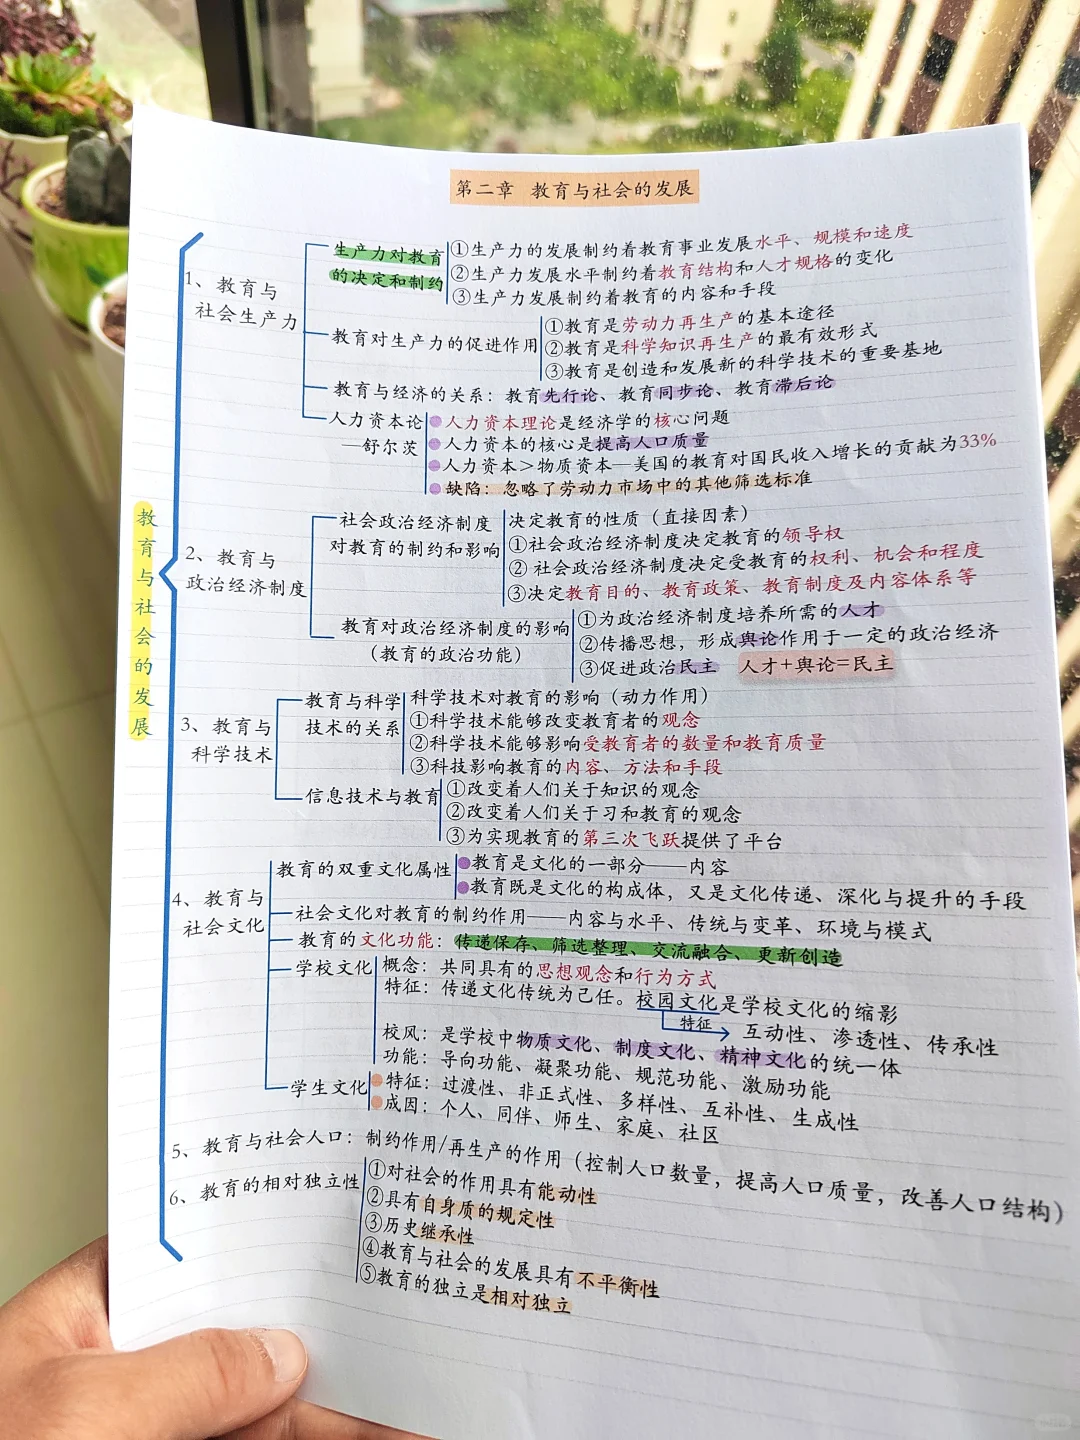 第二章 教育与社会的发展
教育与社会的发展
1、教育与
社会生产力
生产力对教育
的决定和制约
①生产力的发展制约着教育事业发展水平、规模和速度
②生产力发展水平制约着教育结构和人才规格的变化
③生产力发展制约着教育的内容和手段
教育对生产力的促进作用
①教育是劳动力再生产的基本途径
②教育是科学知识再生产的最有效形式
③教育是创造和发展新的科学技术的重要基地
教育与经济的关系：教育先行论、教育同步论、教育滞后论
人力资本论
—舒尔茨
人力资本理论是经济学的核心问题
人力资本的核心是提高人口质量
人力资本＞物质资本—美国的教育对国民收入增长的贡献为33%
缺陷：忽略了劳动力市场中的其他筛选标准
2、教育与
政治经济制度
社会政治经济制度
对教育的制约和影响
决定教育的性质（直接因素）
①社会政治经济制度决定教育的领导权
②社会政治经济制度决定受教育的权利、机会和程度
③决定教育目的、教育政策、教育制度及内容体系等
教育对政治经济制度的影响
（教育的政治功能）
①为政治经济制度培养所需的人才
②传播思想，形成舆论作用于一定的政治经济
③促进政治民主 人才+舆论=民主
3、教育与
科学技术
教育与科学
技术的关系
科学技术对教育的影响（动力作用）
①科学技术能够改变教育者的观念
②科学技术能够影响受教育者的数量和教育质量
③科技影响教育的内容、方法和手段
信息技术与教育
①改变着人们关于知识的观念
②改变着人们关于习和教育的观念
③为实现教育的第三次飞跃提供了平台
4、教育与
社会文化
教育的双重文化属性
教育是文化的一部分——内容
教育既是文化的构成体，又是文化传递、深化与提升的手段
社会文化对教育的制约作用——内容与水平、传统与变革、环境与模式
教育的文化功能：传递保存、筛选整理、交流融合、更新创造
学校文化
概念：共同具有的思想观念和行为方式
特征：传递文化传统为己任。校园文化是学校文化的缩影
特征
互动性、渗透性、传承性
校风：是学校中物质文化、制度文化、精神文化的统一体
功能：导向功能、凝聚功能、规范功能、激励功能
学生文化
特征：过渡性、非正式性、多样性、互补性、生成性
成因：个人、同伴、师生、家庭、社区
5、教育与社会人口：制约作用/再生产的作用（控制人口数量，提高人口质量，改善人口结构）
6、教育的相对独立性
①对社会的作用具有能动性
②具有自身质的规定性
③历史继承性
④教育与社会的发展具有不平衡性
⑤教育的独立是相对独立